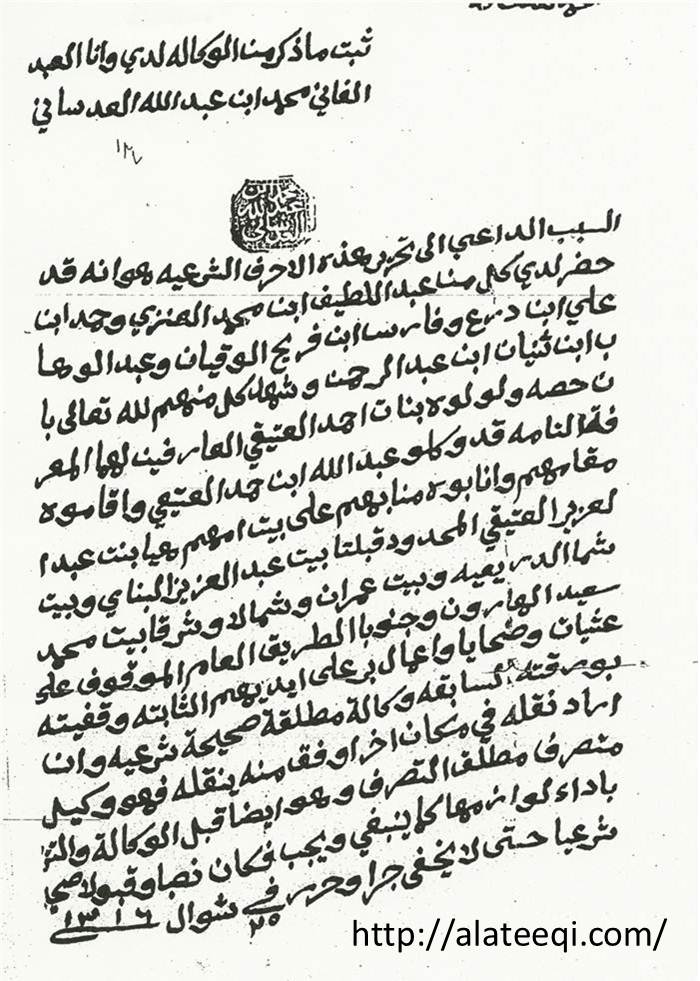 ثبت ما ذكر من الوكاله لدي وانا العبد
الفاني محمد ابن عبد الله العدساني
السبب الداعي الى تحرير هذه الاحرف الشرعيه هو انه قد
حضر لدي كل من عبد اللطيف ابن محمد العنزي وحمد ابن
علي ابن درع وفارس ابن فريح الوقيان وعبد الوها
ب ابن ثنيان ابن عبد الرحمن وشهد كل منهم لله تعالى با
ن حصه ولولوه بنات احمد العتيقي العارفين لهما المعر
فة التامه قد وكلو عبد الله ابن حمد العتيقي واقاموه
مقامهم وانابوه منابهم على بيت امهم هيا بنت عبد ا
لعزيز العتيقي المحدود قبلتا بيت عبد العزيز البناي وبيت
شما الدريعيه وبيت عمران وشمالا وشرقا بيت محمد
سعيد الهارون وجنوبا الطريق العام الموقوف على
عشيات وضحايا واعمال بر على ايديهم الثابته وقفيته
بورقته السابقه وكالة مطلقة صحيحة شرعيه وان
اراد نقله في مكان اخر اوفق منه ينقله فهو وكيل
متصرف مطلق التصرف وهو ايضا قبل الوكالة والتز
باداء لوازمها كما ينبغي ويجب فكان نصا وقبولا صحيحا
شرعيا حتى لا يخفى جرا وحرر في ٢٥ شوال ١٣١٦
http://alateeqi.com/